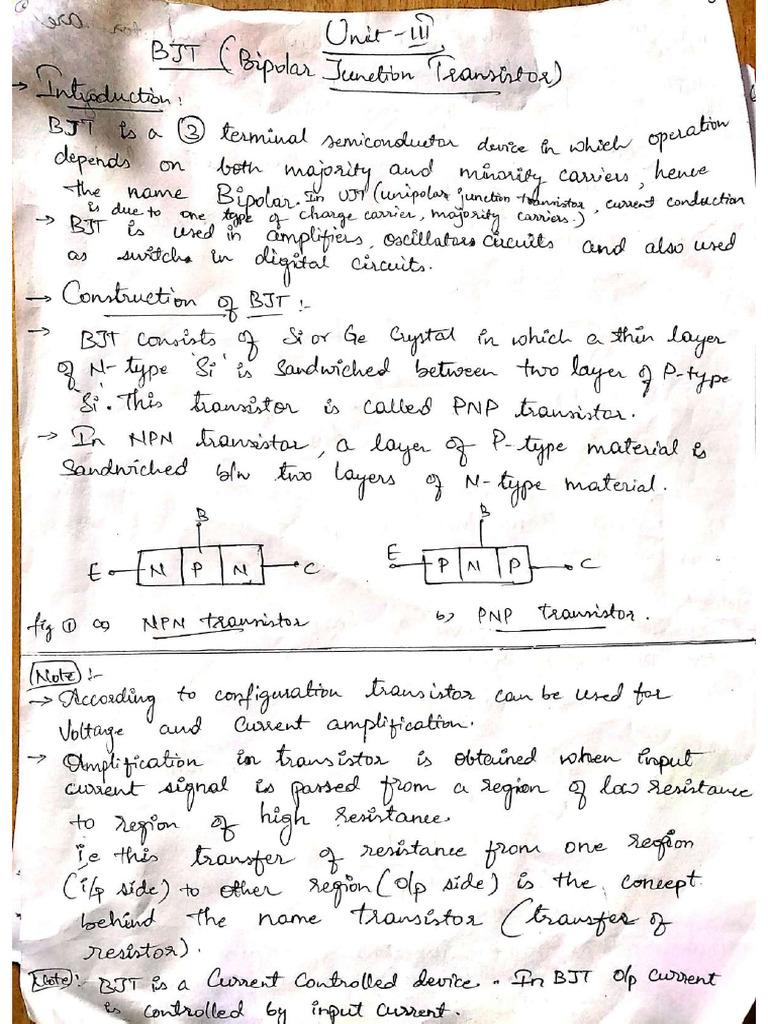 Unit-III
BJT (Bipolar Junction Transistor)
→ Introduction:
BJT is a 3 terminal semiconductor device in which operation
depends on both majority and minority carriers, hence
the name Bipolar. In UJT (unipolar junction transistor, current conduction
is due to one type of charge carrier, majority carriers.)
→ BJT is used in amplifiers, oscillators circuits and also used
as switchs in digital circuits.
→ Construction of BJT :-
→ BJT consists of Si or Ge Crystal in which a thin layer
of N-type 'Si' is sandwiched between two layer of P-type
'Si'. This transistor is called PNP transistor.
→ In NPN transistor, a layer of P-type material is
sandwiched b/w two layers of N-type material.
B B
E N P N C E P N P C
fig 1 a) NPN transistor b) PNP transistor.
Note :-
→ According to configuration transistor can be used for
Voltage and Current amplification.
→ Amplification in transistor is obtained when input
current signal is passed from a region of low resistance
to region of high resistance.
i.e this transfer of resistance from one region
(i/p side) to other region (o/p side) is the concept
behind the name transistor (transfer of
resistor).
Note: BJT is a Current Controlled device. In BJT o/p current
is controlled by input current.